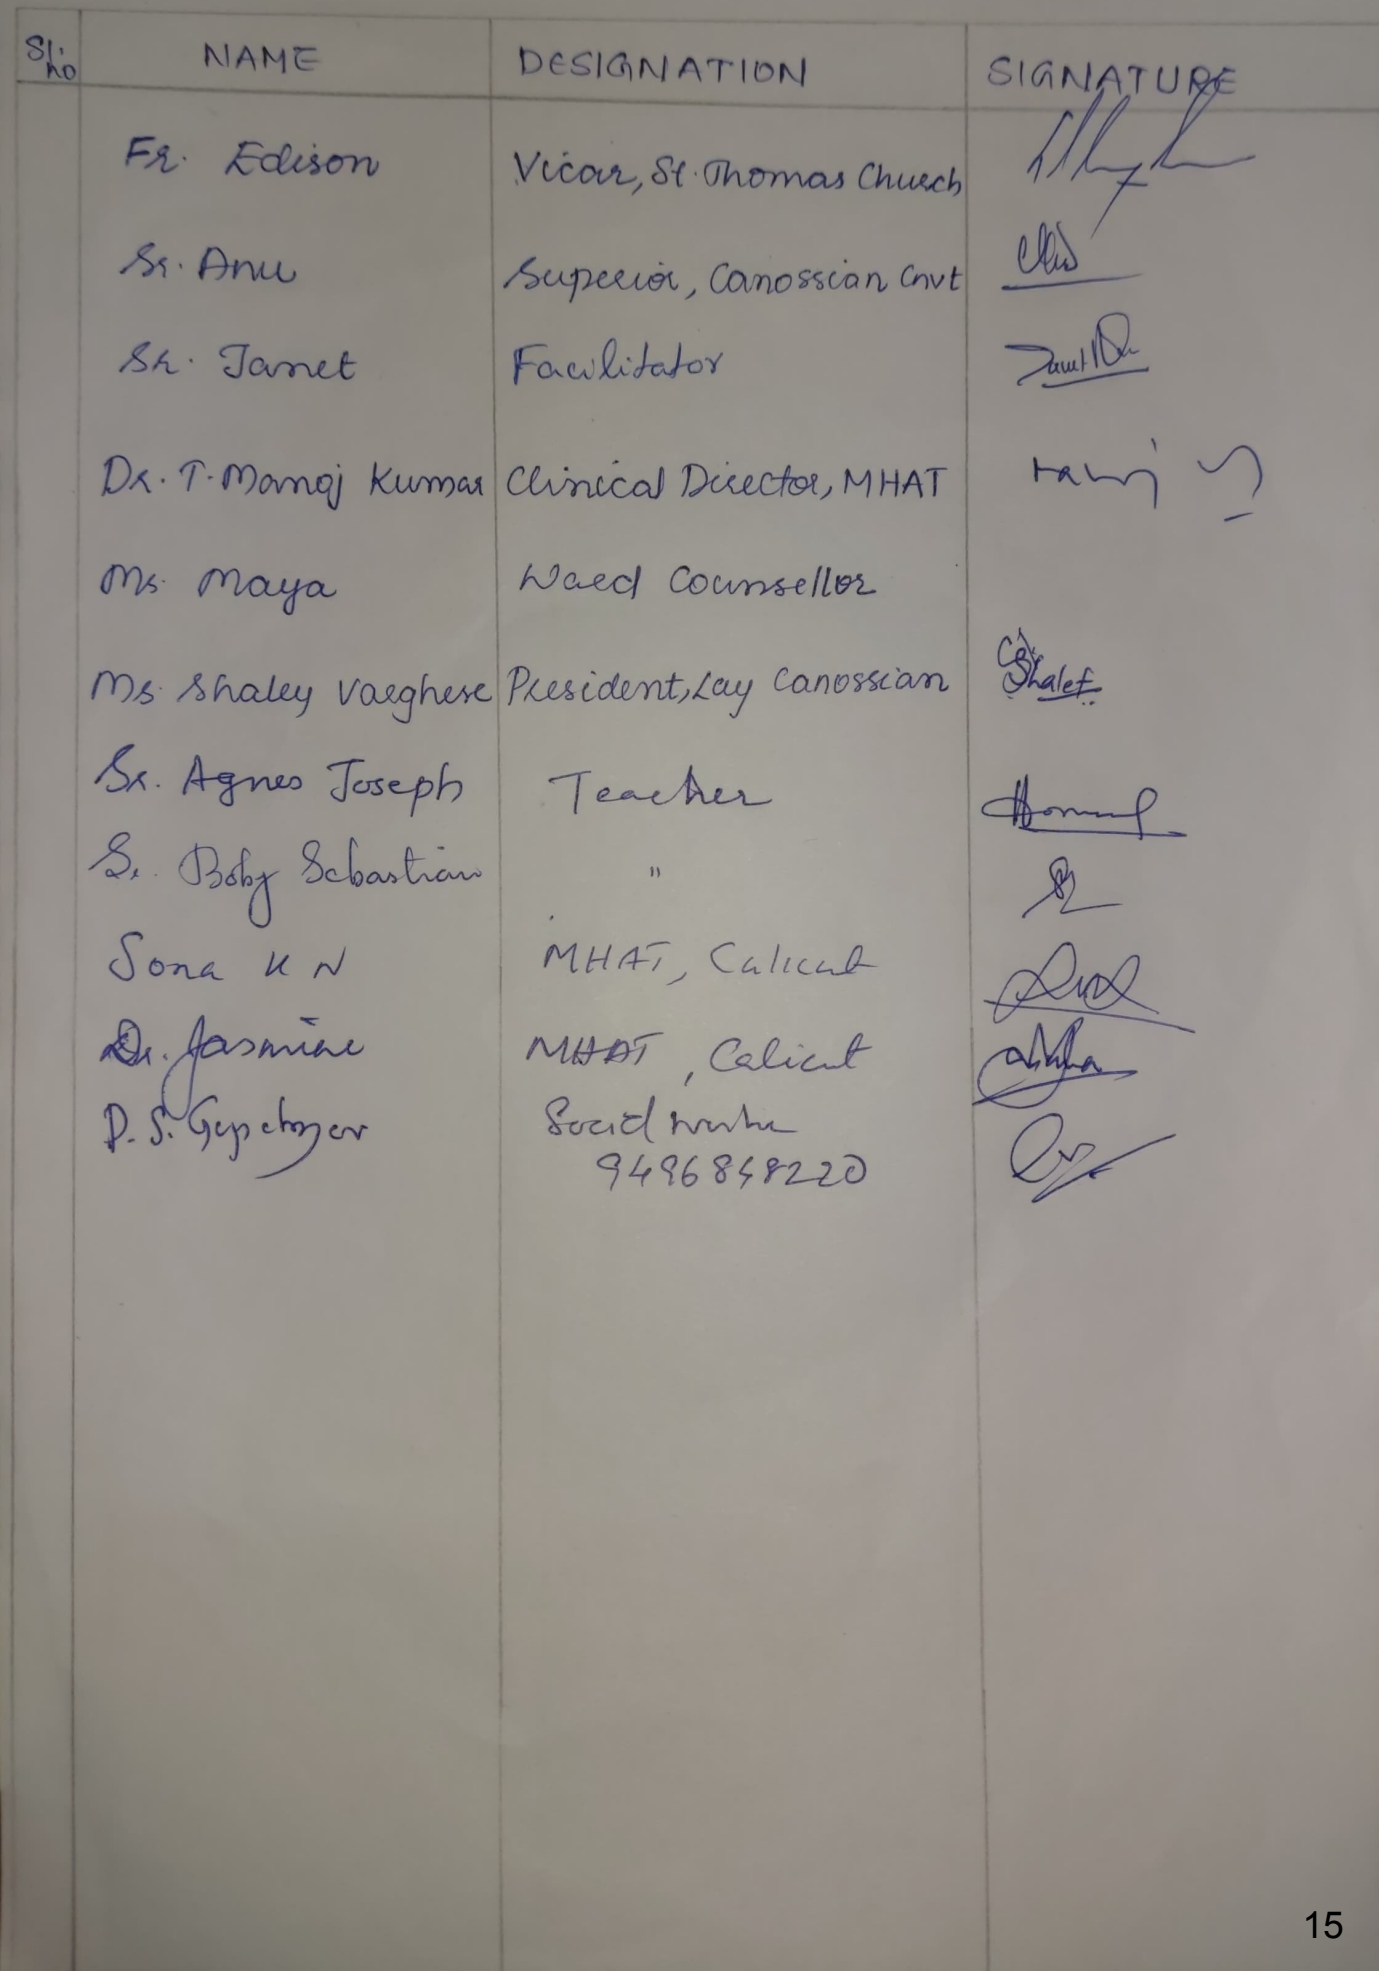 Sl. no NAME DESIGNATION SIGNATURE
Fr. Edison Vicar, St. Thomas Church
Sr. Anu Superior, Canossian Cnvt
Sr. Janet Facilitator
Dr. T. Manoj Kumar Clinical Director, MHAT
Ms. Maya Ward Counsellor
Ms. Shaley Varghese President, Lay Canossian
Sr. Agnes Joseph Teacher
Sr. Boby Sebastian "
Sona K N MHAT, Calicut
Dr. Jasmine MHAT, Calicut
P. S. Social worker
9496848220
15